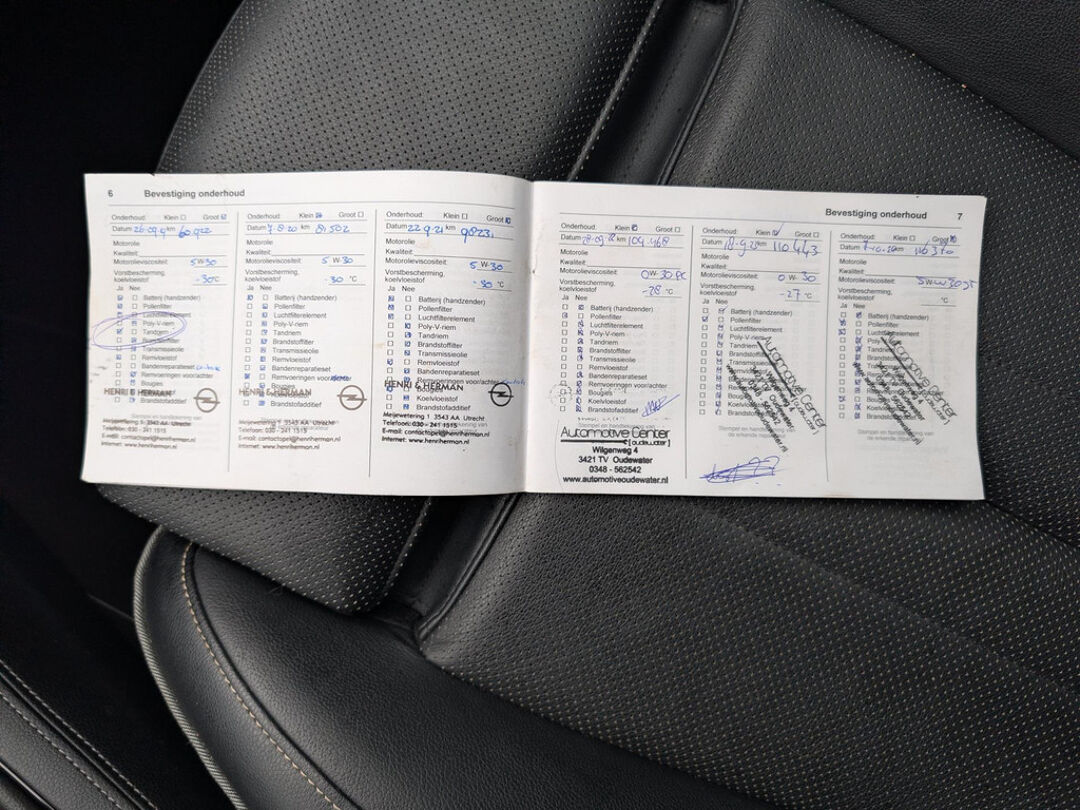 6 Bevestiging onderhoud
Onderhoud: Klein Groot
Datum 26-09-9 km 60922
Motorolie
Kwaliteit:
Motorolieviscositeit: 5 W-30
Vorstbescherming,
koelvloeistof -30°C
Ja Nee
Batterij (handzender)
Pollenfilter
Luchtfilterelement
Poly-V-riem
Tandriem
Brandstoffilter
Transmissieolie
Remvloeistof
Bandenreparatieset
Remvoeringen voor/achter
Bougies
HENRI & HERMAN
Brandstofadditief
Stempel en handtekening van
Meijewetering 1 3543 AA Utrecht
Telefoon: 030 - 241 1515
E-mail: contactopel@henriherman.nl
Internet: www.henriherman.nl
Onderhoud: Klein Groot
Datum 7-8-20 km 81502
Motorolie
Kwaliteit:
Motorolieviscositeit: 5 W-30
Vorstbescherming,
koelvloeistof -30 °C
Ja Nee
Batterij (handzender)
Pollenfilter
Luchtfilterelement
Poly-V-riem
Tandriem
Brandstoffilter
Transmissieolie
Remvloeistof
Bandenreparatieset
Remvoeringen voor/achter
Bougies
HENRI & HERMAN
Brandstofadditief
Meijewetering 1 3543 AA Utrecht
Telefoon: 030 - 241 1515
E-mail: contactopel@henriherman.nl
Internet: www.henriherman.nl
Onderhoud: Klein Groot
Datum 22-9-21 km 98231
Motorolie
Kwaliteit:
Motorolieviscositeit: 5 W-30
Vorstbescherming,
koelvloeistof -30 °C
Ja Nee
Batterij (handzender)
Pollenfilter
Luchtfilterelement
Poly-V-riem
Tandriem
Brandstoffilter
Transmissieolie
Remvloeistof
Bandenreparatieset
Remvoeringen voor/achter
HENRI & HERMAN
Bougies
Koelvloeistof
Brandstofadditief
Meijewetering 1 3543 AA Utrecht
Telefoon: 030 - 241 1515
E-mail: contactopel@henriherman.nl
Internet: www.henriherman.nl
Bevestiging onderhoud 7
Onderhoud: Klein Groot
Datum km 104.468
Motorolie
Kwaliteit:
Motorolieviscositeit: 0W-30
Vorstbescherming,
koelvloeistof -28 °C
Ja Nee
Batterij (handzender)
Pollenfilter
Luchtfilterelement
Poly-V-riem
Tandriem
Brandstoffilter
Transmissieolie
Remvloeistof
Bandenreparatieset
Remvoeringen voor/achter
Bougies
Koelvloeistof
Brandstofadditief
Automotive Center
[oudewater]
Wilgenweg 4
3421 TV Oudewater
0348 - 562542
www.automotiveoudewater.nl
Onderhoud: Klein Groot
Datum km 110.443
Motorolie
Kwaliteit:
Motorolieviscositeit: 0 W-30
Vorstbescherming,
koelvloeistof -27 °C
Ja Nee
Batterij (handzender)
Pollenfilter
Luchtfilterelement
Poly-V-riem
Tandriem
Brandstoffilter
Transmissieolie
Remvloeistof
Bandenreparatieset
Remvoeringen
Bougies
Koelvloeistof
Brandstofadditief
Automotive Center
Stempel en handtekening van
de erkende reparateur
Onderhoud: Klein Groot
Datum km
Motorolie
Kwaliteit:
Motorolieviscositeit:
Vorstbescherming,
koelvloeistof °C
Ja Nee
Batterij (handzender)
Pollenfilter
Luchtfilterelement
Poly-V-riem
Tandriem
Brandstoffilter
Transmissieolie
Remvloeistof
Bougies
Koelvloeistof
Brandstofadditief
Automotive Center